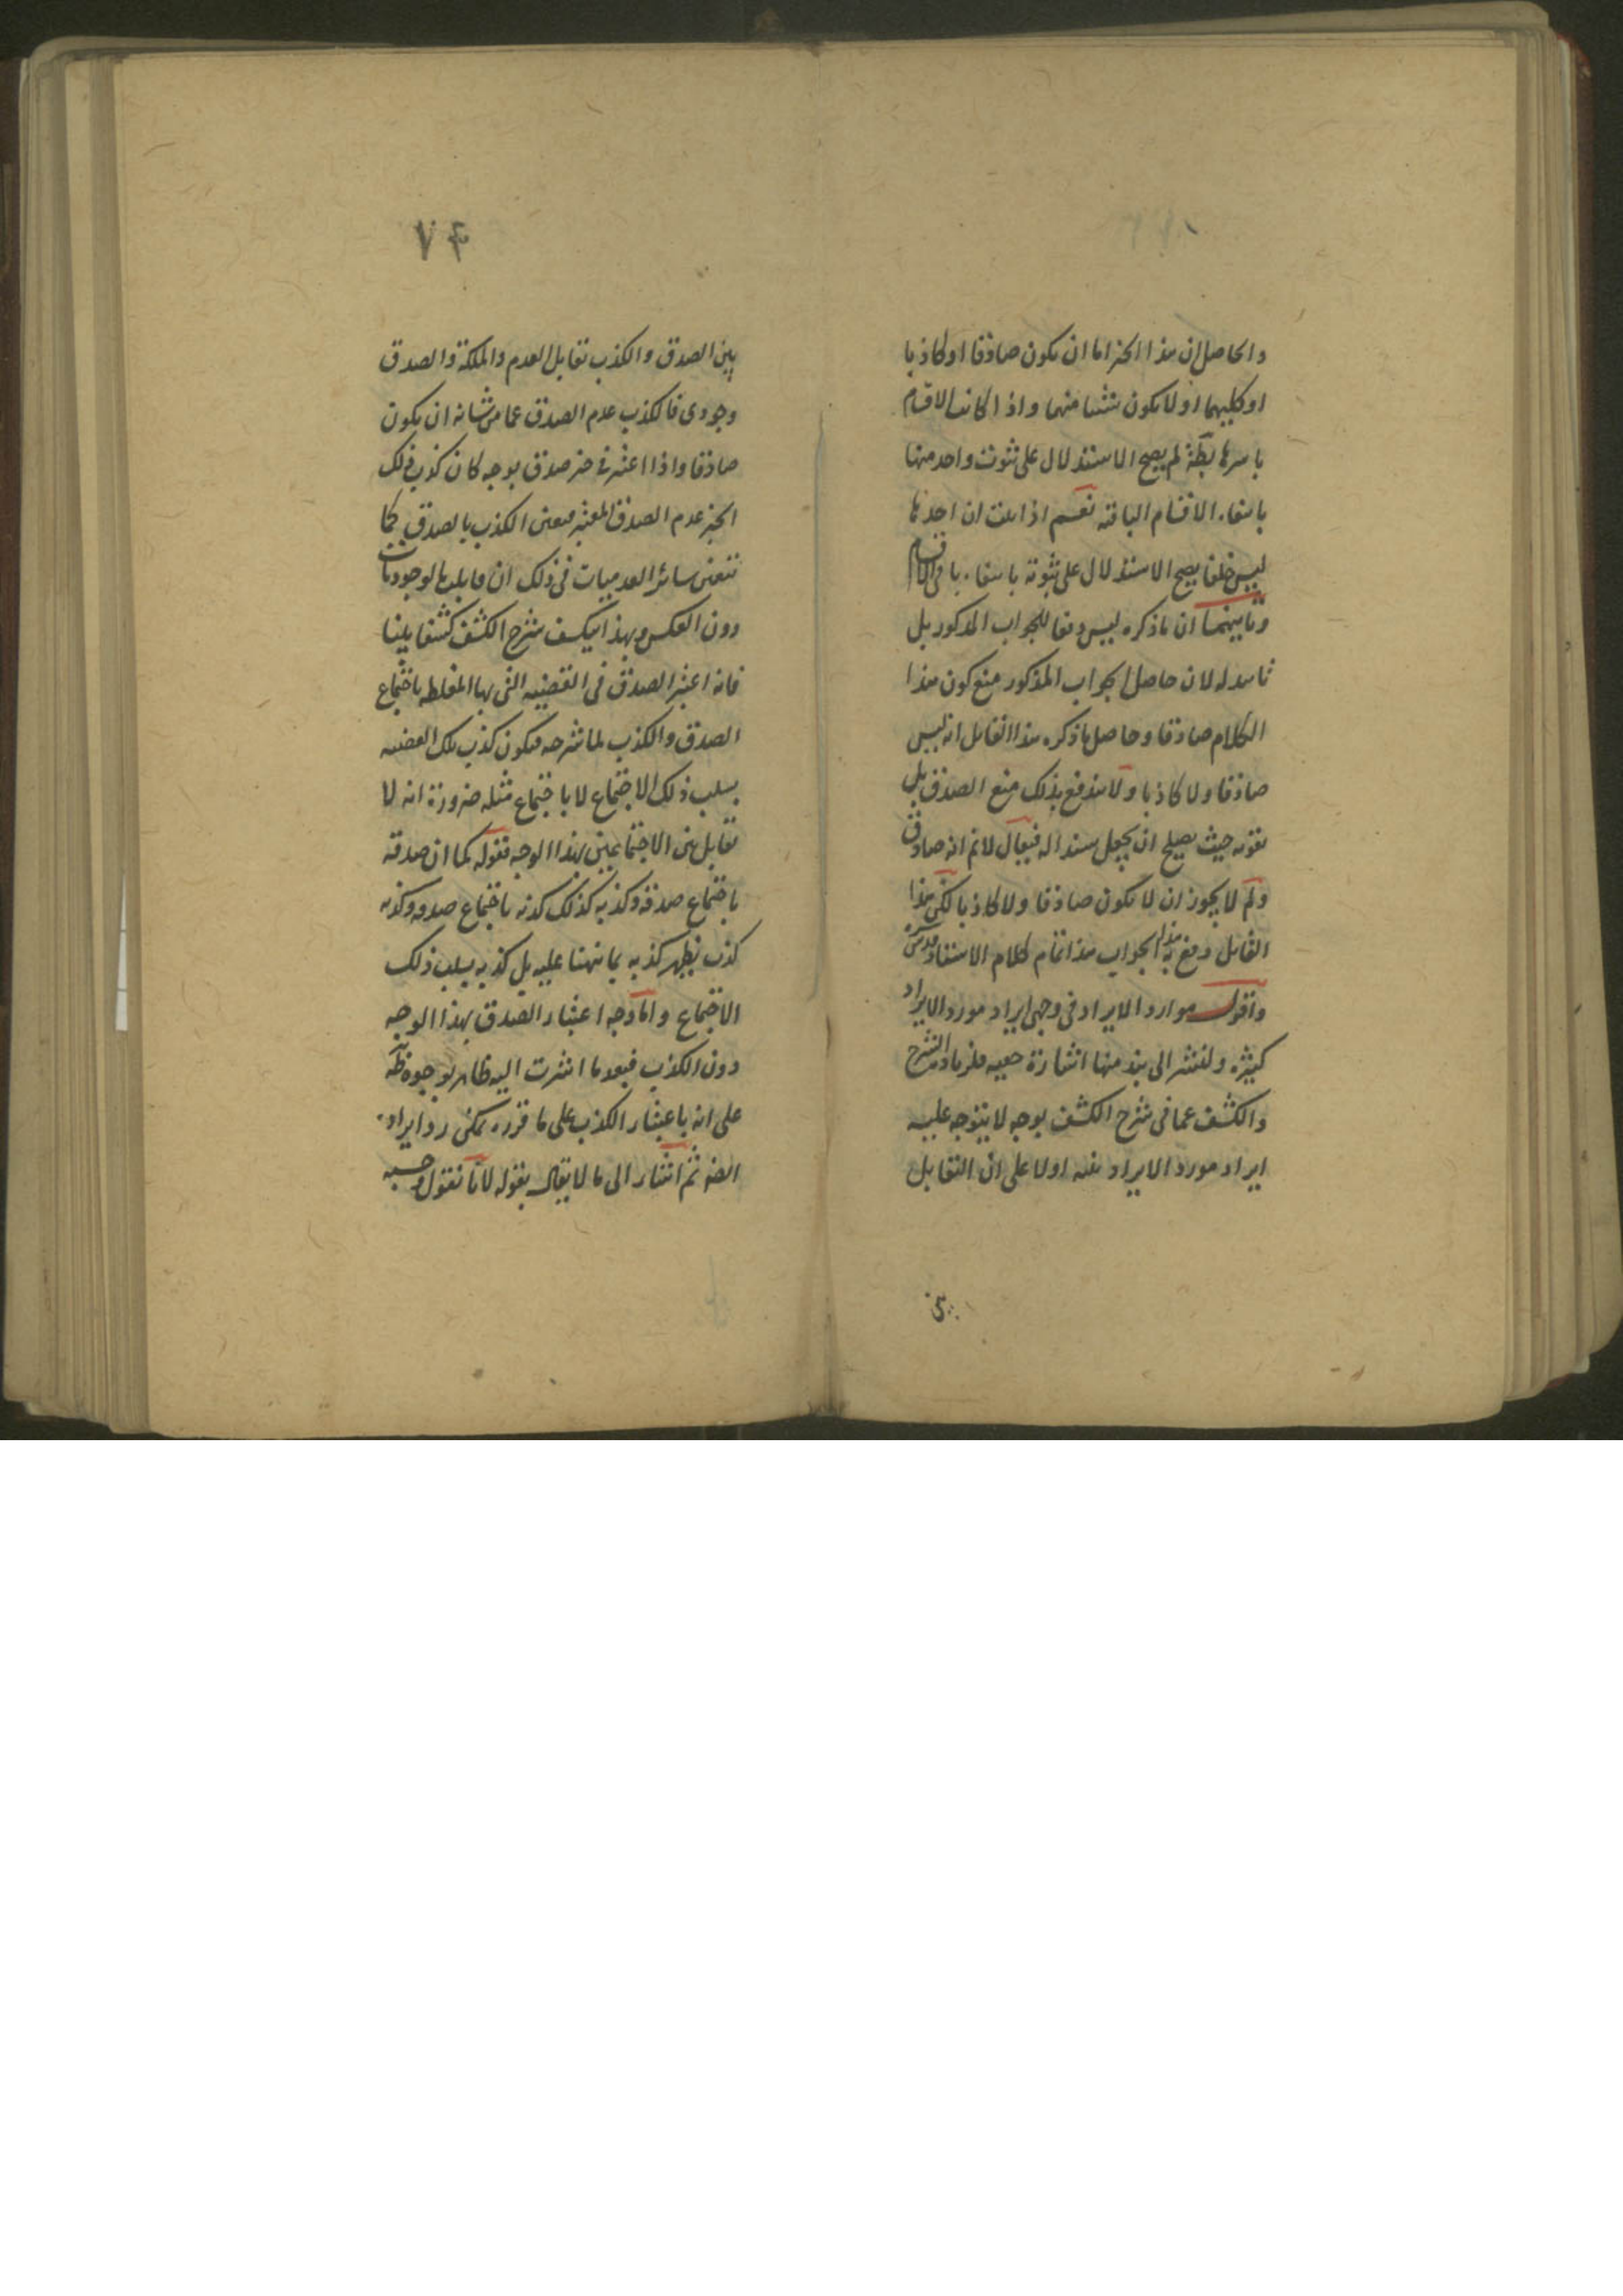 والحاصل ان هذا الخبر اما ان يكون صادقا او كاذبا
او كليهما او لا يكون شيئا منهما واذا كانت الاقسام
باسرها بط لم يصح الاستدلال على ثبوت واحد منها
بانتفاء الاقسام الباقية نعم اذا ثبت ان احدها
ليس خلفا يصح الاستدلال على ثبوته بانتفاء باقى الاقسام
وثانيهما ان ما ذكره ليس دفعا للجواب المذكور بل
تاييد له لان حاصل الجواب المذكور منع كون هذا
الكلام صادقا وحاصل ما ذكره هذا القايل انه ليس
صادقا ولا كاذبا ولا يندفع بذلك منع الصدق بل
يقويه حيث يصلح ان يجعل سندا له فيقال لانم انه صادق
ولم لا يجوز ان لا يكون صادقا ولا كاذبا لكن هذا
القايل دفع به هذا الجواب هذا تمام كلام الاستاد قدس سره
واقول موارد الايراد فى وجهى ايراد مورد الايراد
كثيرة ولنشر الى نبذ منها اشارة الشرح
والكشف عما فى شرح الكشف بوجه لا يتوجه عليه
ايراد مورد الايراد نفسه اولا على ان التقابل
بين
٧۴
بين الصدق والكذب تقابل العدم والملكة والصدق
وجودى فالكذب عدم الصدق عما من شانه ان يكون
صادقا واذا اعتبر فى خبر صدق بوجه كان كذب ذلك
الخبر عدم الصدق المعتبر فيعين الكذب بالصدق كما
يتعين سائر العدميات فى ذلك ان مقابلها الوجوديات
دون العكس وبهذا ينكشف شرح الكشف كشفا بينا
فانه اعتبر الصدق فى القضيه التى بها المغلطه باجتماع
الصدق والكذب لما شرحه فيكون كذب تلك القضيه
بسلب ذلك الاجتماع لا باجتماع مثله ضرورة انه لا
تقابل بين الاجتماعين بهذا الوجه فقوله كما ان صدقه
باجتماع صدقه وكذبه كذلك كذبه باجتماع صدقه وكذبه
كذب يظهر كذبه بما نبهنا عليه بل كذبه بسلب ذلك
الاجتماع واما وجه اعتبار الصدق بهذا الوجه
دون الكذب فبعد ما اشرت اليه ظاهر بوجوه
على انه باعتبار الكذب على ما قرره يمكن رد ايراده
ايضه ثم اشار الى ما لا يقال بقوله لانا نقول وحسبه